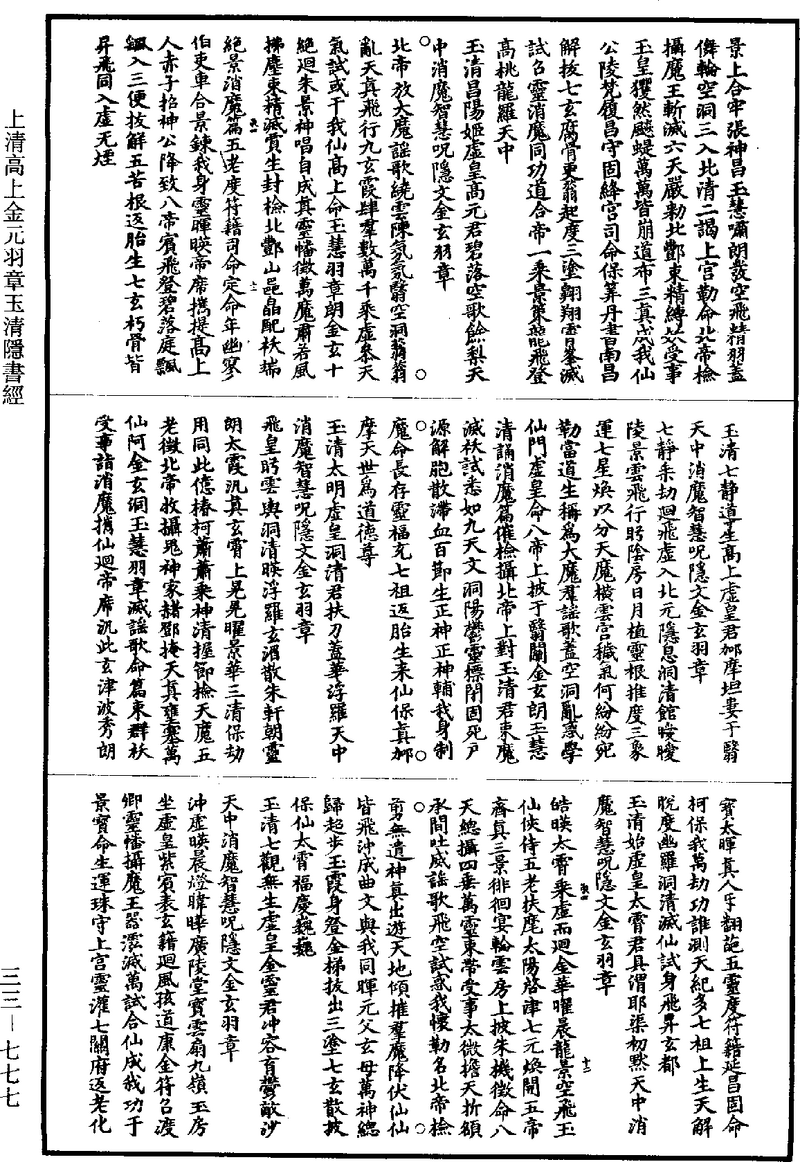 景上合牢張神昌玉慧嘯朗啟空飛精羽蓋
儛輪空洞三入北清二謁上宫勤命北帝檢
攝魔王斬滅六天嚴勑北酆束精縛妖受事
玉皇玃然飈煶萬萬皆崩道布三真成我仙
公陵梵履昌守固絳宮司命保筭丹書南昌
解拔七玄腐骨更翁起度三塗翱翔霄峯滅
試召靈消魔同功道合帝一乘景策龍飛登
高桃龍羅天中
玉清昌陽姬虛皇高元君碧落空歌餘梨天
中消魔智慧呪隱文金玄羽章
北帝放大魔謠歌繞雲陳氛氛翳空洞蓊蓊
亂天真飛行九玄霞肆羣數萬千乘虛恭天
氣試或干我仙高上命玉慧羽章朗金玄十
絕迴朱景神唱自成真靈幡徵萬魔肅若風
拂塵束精滅質生封檢北酆山邑晶配袄端
絕景消魔篇五老度符籍司命定命年幽寥
伯吏車合景錬我身靈暉暎帝席携提高上
人赤子招神公降致八帝賓飛登碧落庭飄
飄入三便拔解五苦根返胎生七玄朽骨皆
昇飛同入虛无煙
玉清七靜道生高上虛皇君那摩坦婁于翳
天中消魔智慧呪隱文金玄羽章
七靜乘劫迴飛虛入北元隱息洞清館晻曖
陵景雲飛行眄陰房日月植靈根推度三象
運七星煥以分天魔橫雲宫穢氣何紛紛兜
勒當道生稱爲大魔羣謠歌蓋空洞亂惑學
仙門虛皇命八帝上披于翳闌金玄朗玉慧
清誦消魔篇催檢攝北帝上對玉清君束魔
滅袄試悉如九天文洞陽鬱靈標閉固死户
源解胞散滯血百節生正神正神輔我身制
魔命長存靈福充七祖返胎生來仙保真那
摩天世爲道德尊
玉清太明虛皇洞清君扶刀蓋華浮羅天中
消魔智慧呪隱文金玄羽章
飛皇眄雲輿洞清暎浮羅玄酒散朱軒朝靈
朗太霞汎真玄霄上晃晃曜景華三清保劫
用同此億椿柯蕭蕭乘神清握節檢天魔五
老徵北帝收攝鬼神家赭酆掩天真壅塞萬
仙阿金玄洞玉慧羽章滅謠歌命篇束群袄
受事詣消魔攜仙迴帝席汎此玄津波秀朗
寳太暉真人手翻葩五靈度符籍延昌固命
柯保我萬劫功誰測天紀多七祖上生天解
脫度幽羅洞清滅仙試身飛昇玄都
玉清始虛皇太霄君具渭耶渠初默天中消
魔智慧呪隱文金玄羽章
皓暎太霄乘虛而迴金華曜晨龍景空飛玉
仙俠侍五老扶麾太陽啓津七元煥開五帝
齊真三景徘徊宴輪雲房上披朱機徵命八
天總攝四乗萬靈束帶受事太微擔天折領
承間吐威謠歌飛空試惑我懷勒名北帝檢
剪無遺神真出遊天地傾摧羣魔降伏仙仙
皆飛沖成曲文與我同暉元父玄母萬神總
歸起步玉霞身登金梯拔出三塗七玄散披
保仙太霄福慶巍巍
玉清七觀無生虛皇金靈君冲容育鬱敵沙
天中消魔智慧呪隱文金玄羽章
沖虛暎晨燈暐曄廣陵堂寳雲扇九嶺玉房
坐虛皇紫賓表玄籍迴風孩道康金符召渡
卿靈幡攝魔王啓澐滅萬試合仙成我功于
景寳命生運珠守上宫靈灌七關府返老化
上清高上金元羽章玉清隱書經
三三—七七七